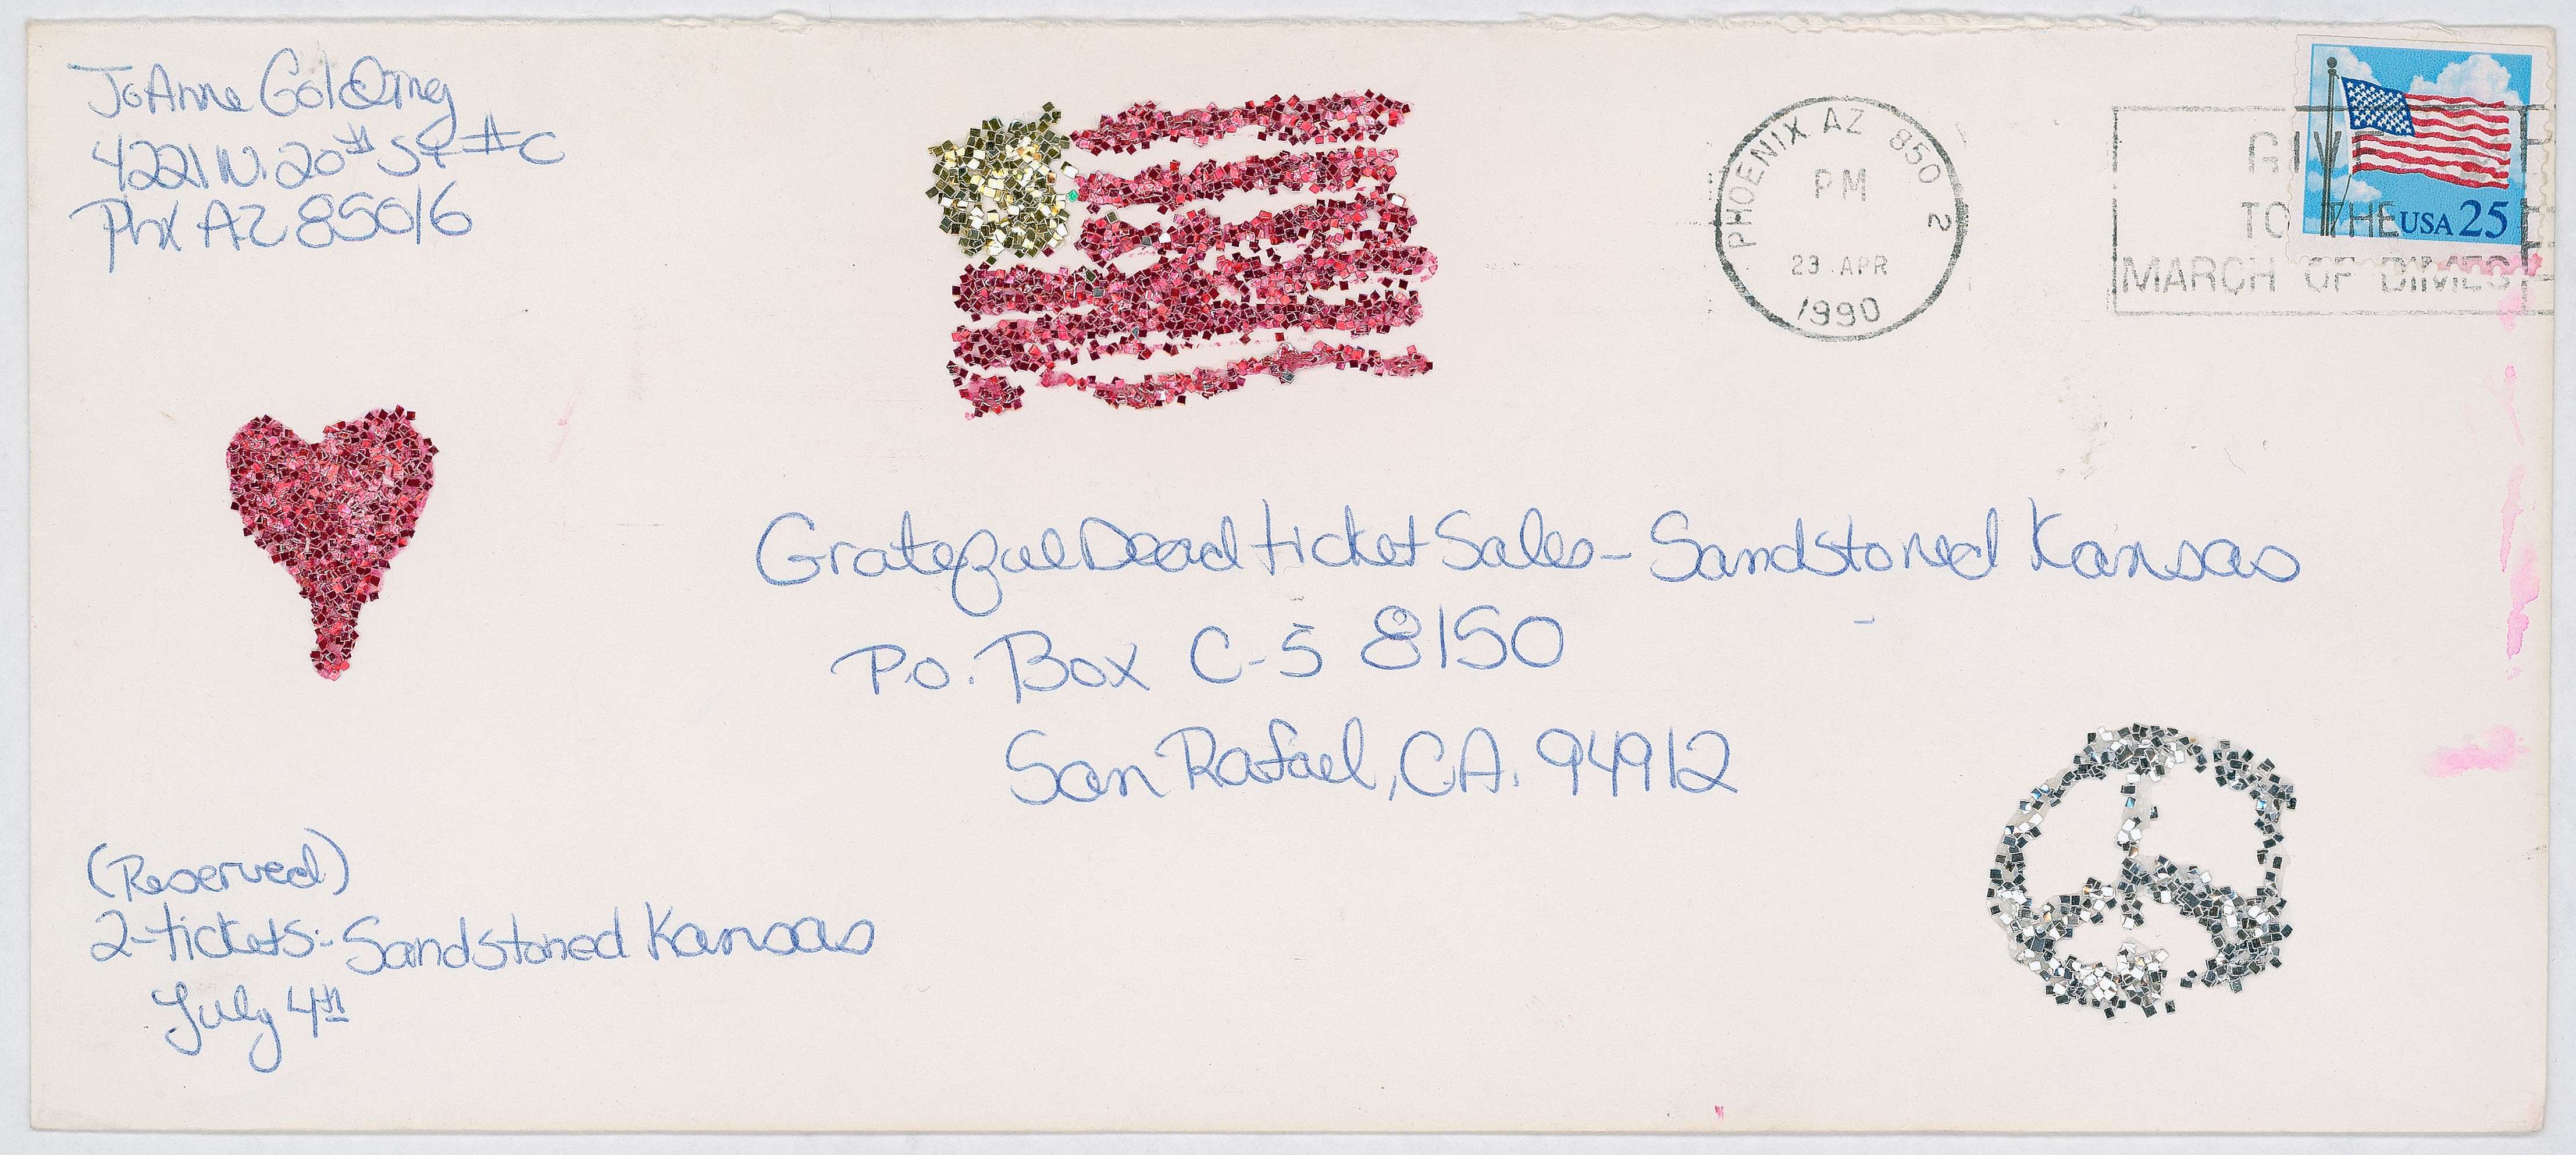 JoAnne Golding
4221 N. 20th St #C
Phx AZ 85016
PHOENIX AZ 850 2
PM
23 APR
1990
GIVE
TO THE
MARCH OF DIMES
USA 25
Grateful Dead ticket Sales - Sandstoned Kansas
P.o. Box C-S 8150
San Rafael, CA. 94912
(Reserved)
2-tickets:- Sandstoned Kansas
July 4th